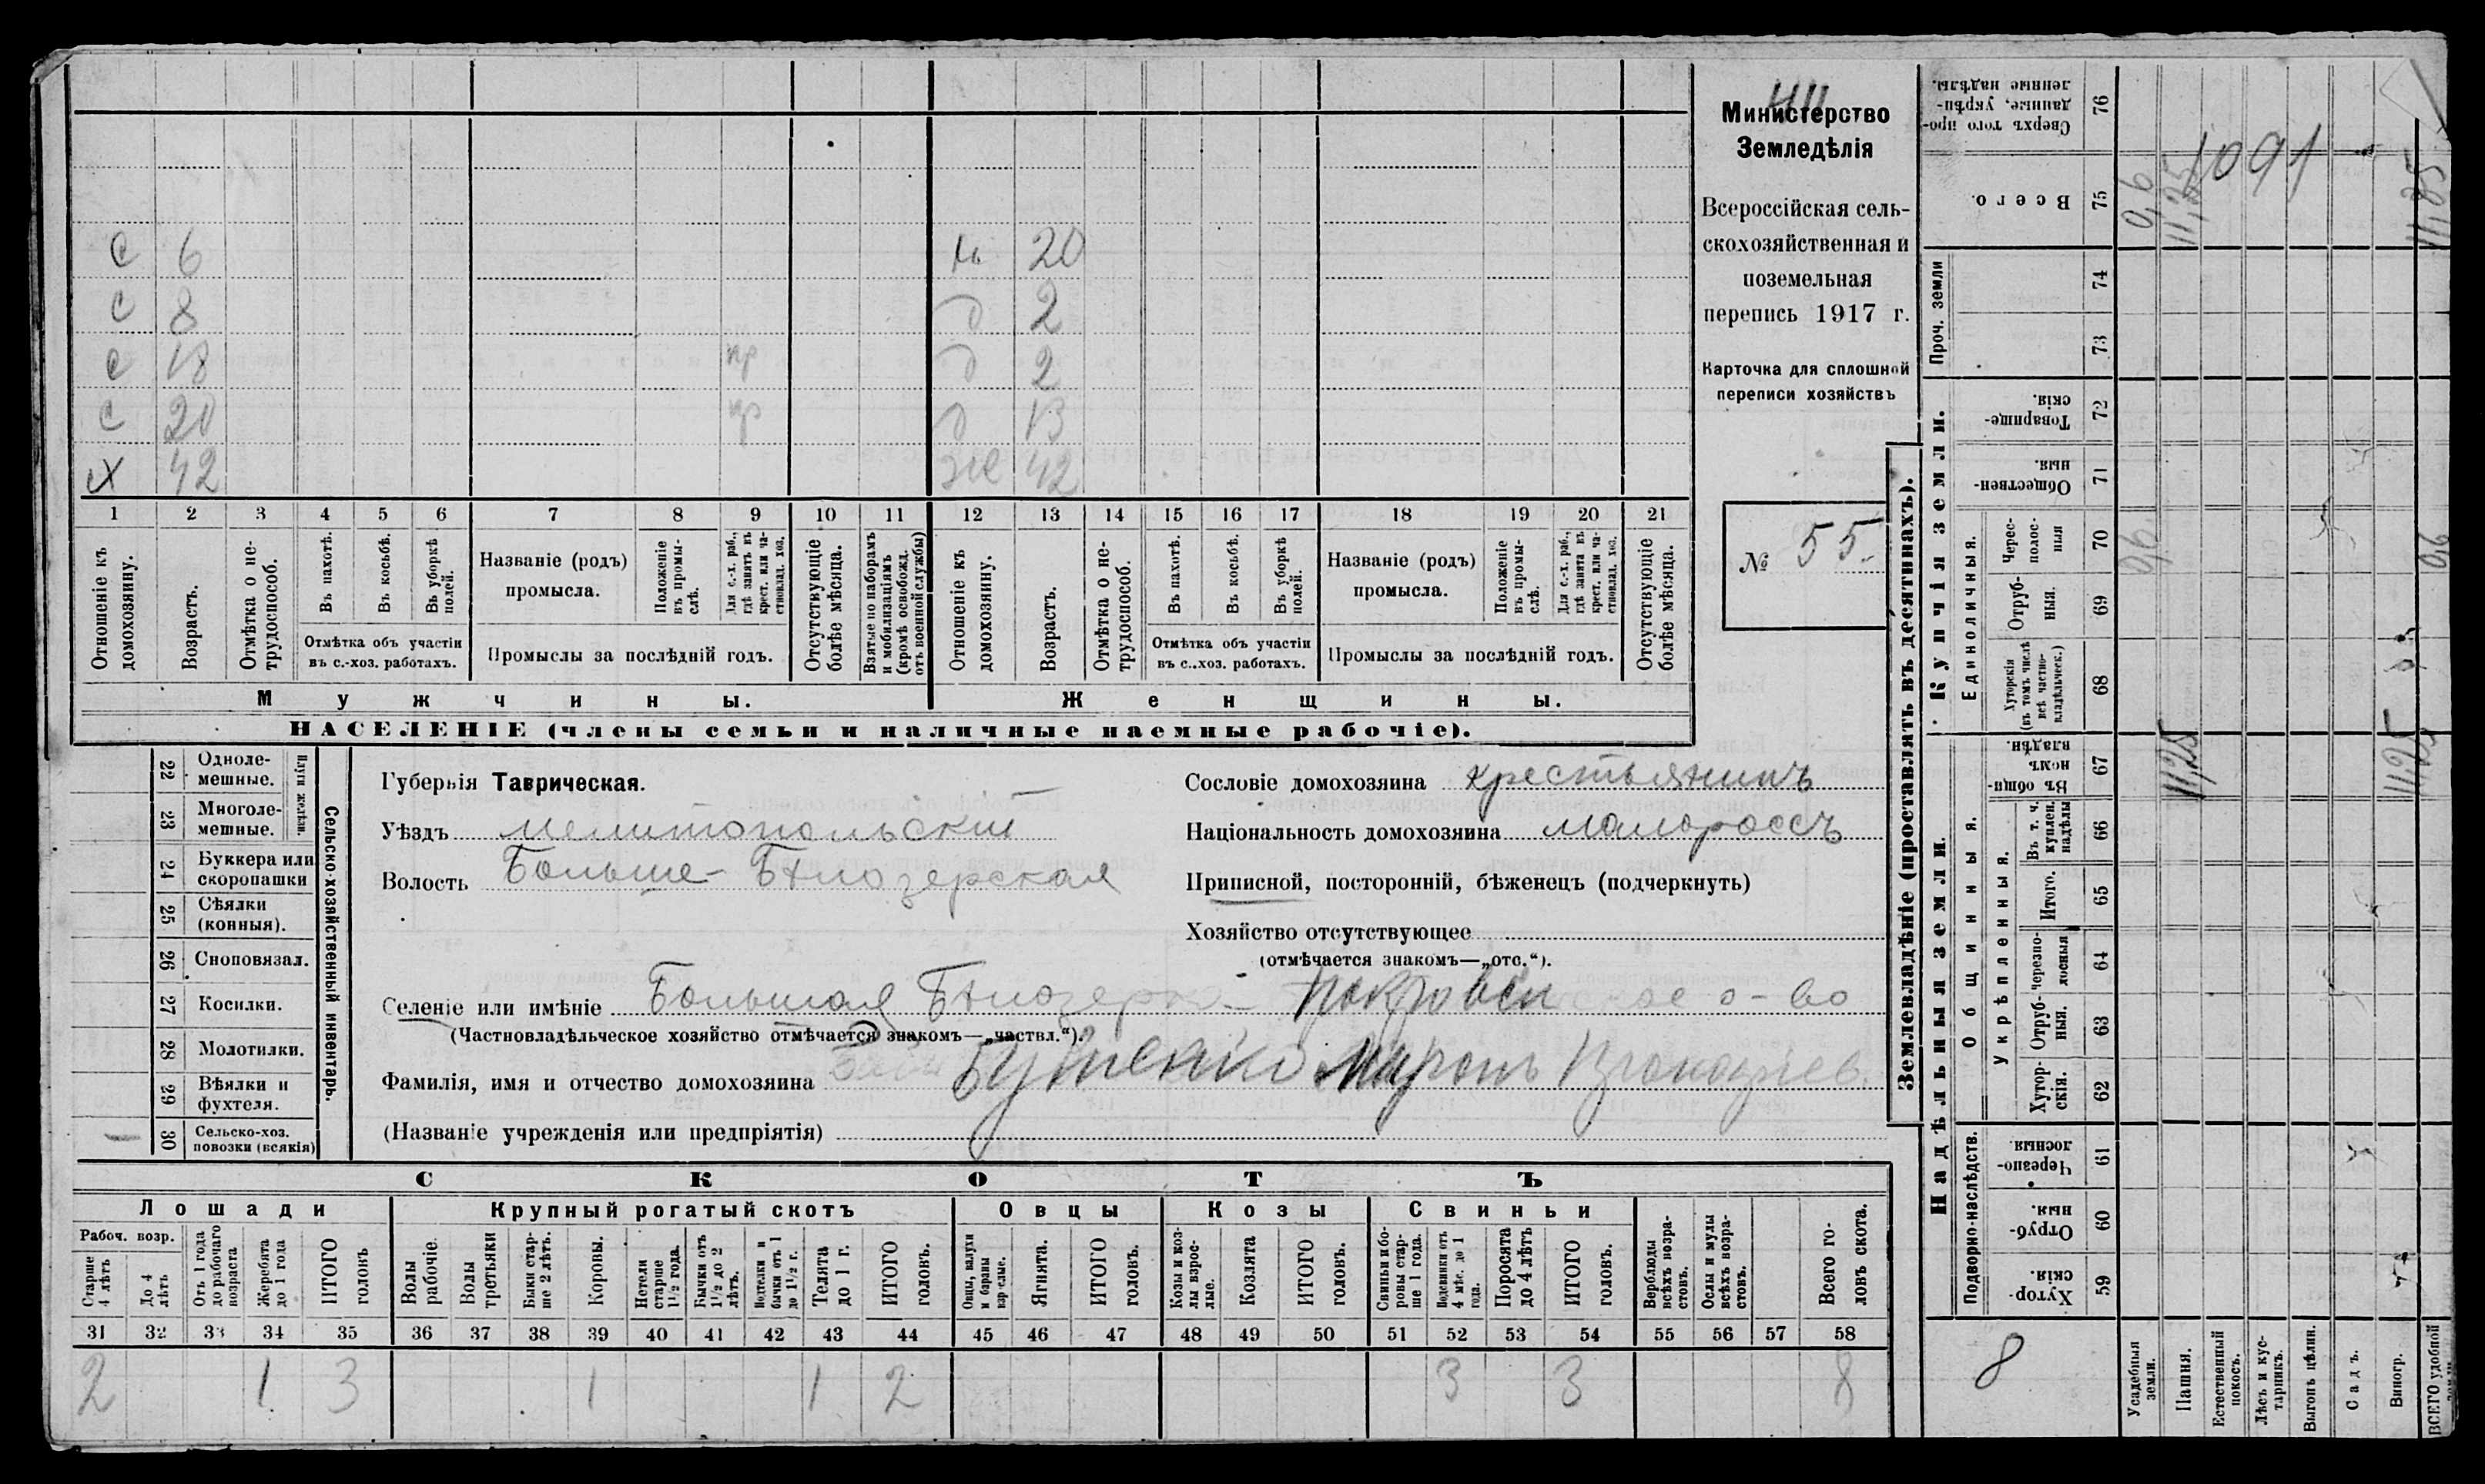 411
Министерство
Земледѣлія
Всероссійская сель-
скохозяйственная и
поземельная
перепись 1917 г.
Карточка для сплошной
переписи хозяйствъ
№ 55.
с 6
с 8
с 18 пр
с 20 пр
х 42
20
д 2
д 2
д 13
же 42
1 2 3 4 5 6 7 8 9 10 11 12 13 14 15 16 17 18 19 20 21
Отношеніе къ домохозяину.
Возрастъ.
Отмѣтка о не-трудоспособ.
Въ пахотѣ.
Въ косьбѣ.
Въ уборкѣ полей.
Отмѣтка объ участіи
въ с.-хоз. работахъ.
Названіе (родъ)
промысла.
Положеніе въ промы-слѣ.
Для с.-х. раб., гдѣ занятъ въ крест. или ча-стновлад. хоз.
Промыслы за послѣдній годъ.
Отсутствующіе болѣе мѣсяца.
Взятые по наборамъ и мобилизаціямъ (кромѣ освобожд. отъ военной службы)
Отношеніе къ домохозяину.
Возрастъ.
Отмѣтка о не-трудоспособ.
Въ пахотѣ.
Въ косьбѣ.
Въ уборкѣ полей.
Отмѣтка объ участіи
въ с..хоз. работахъ.
Названіе (родъ)
промысла.
Положеніе въ промы-слѣ.
Для с.-х. раб., гдѣ занята въ крест. или ча-стновлад. хоз.
Промыслы за послѣдній годъ.
Отсутствующіе болѣе мѣсяца.
Мужчины.
Женщины.
НАСЕЛЕНІЕ (члены семьи и наличные наемные рабочіе).
22 Одноле-мешные.
23 Многоле-мешные.
Плуги желѣзн.
24 Буккера или скоропашки
25 Сѣялки (конныя).
26 Сноповязал.
27 Косилки.
28 Молотилки.
29 Вѣялки и фухтеля.
30 Сельско-хоз. повозки (всякія)
Сельско-хозяйственный инвентарь.
Губернія Таврическая.
Уѣздъ Мелитопольскій
Волость Больше-Бѣлозерская
Сословіе домохозяина крестьянинъ
Національность домохозяина малороссъ
Приписной, посторонній, бѣженецъ (подчеркнуть)
Хозяйство отсутствующее
(отмѣчается знакомъ—„отс.“).
Селеніе или имѣніе Большая Бѣлозерка - Покровское о-во
(Частновладѣльческое хозяйство отмѣчается знакомъ—„частвл.“).
Фамилія, имя и отчество домохозяина Бутенко Миронъ
(Названіе учрежденія или предпріятія)
СКОТЪ
Лошади
Крупный рогатый скотъ
Овцы
Козы
Свиньи
Рабоч. возр.
Старше 4 лѣтъ
До 4 лѣтъ
Отъ 1 года до рабочаго возраста
Жеребята до 1 года
ИТОГО головъ
Волы рабочіе.
Волы третьяки
Быки стар-ше 2 лѣтъ.
Коровы.
Нетели старше 1½ года.
Бычки отъ 1½ до 2 лѣтъ.
Подтелки и бычки отъ 1 до 1½ г.
Телята до 1 г.
ИТОГО головъ.
Овцы, валухи и бараны взрослые.
Ягнята.
ИТОГО головъ.
Козы и коз-лы взрос-лые.
Козлята
ИТОГО головъ.
Свиньи и бо-ровы стар-ше 1 года.
Подсвинки отъ 4 мѣс. до 1 года.
Поросята до 4 лѣтъ
ИТОГО головъ.
Верблюды всѣхъ возра-стовъ.
Ослы и мулы всѣхъ возра-стовъ.
Всего го-ловъ скота.
31 32 33 34 35 36 37 38 39 40 41 42 43 44 45 46 47 48 49 50 51 52 53 54 55 56 57 58
2 1 3 1 1 2 3 3 8
Землевладѣніе (проставлять въ десятинахъ).
Надѣльныя земли.
Купчія земли.
Проч. земли
Подворно-наслѣдств.
Общинныя.
Укрѣпленныя.
Единоличныя.
Сверхъ того про-данные, укрѣп-ленные надѣлы. 76
Всего. 75
74
73
Товарище-скія. 72
Обществен-ныя. 71
Черес-полос-ныя 70
Отруб-ныя. 69
Хуторскія (въ томъ числѣ всѣ частно-владѣльческ.) 68
Въ общин-номъ владѣн. 67
Въ т. ч. куплен. надѣлы 66
Итого. 65
черезпо-лосныя 64
Отруб-ныя. 63
Хутор-скія. 62
Черезпо-лосныя. 61
Отруб-ныя. 60
Хутор-скія. 59
8
Усадебныя земли.
Пашня.
Естественный покосъ.
Лѣсъ и кус-тарникъ.
Выгонъ цѣлин.
Садъ.
Виногр.
ВСЕГО удобной
0,6
11,25
1091
11,85
0,6
0,6
11,25
11,25